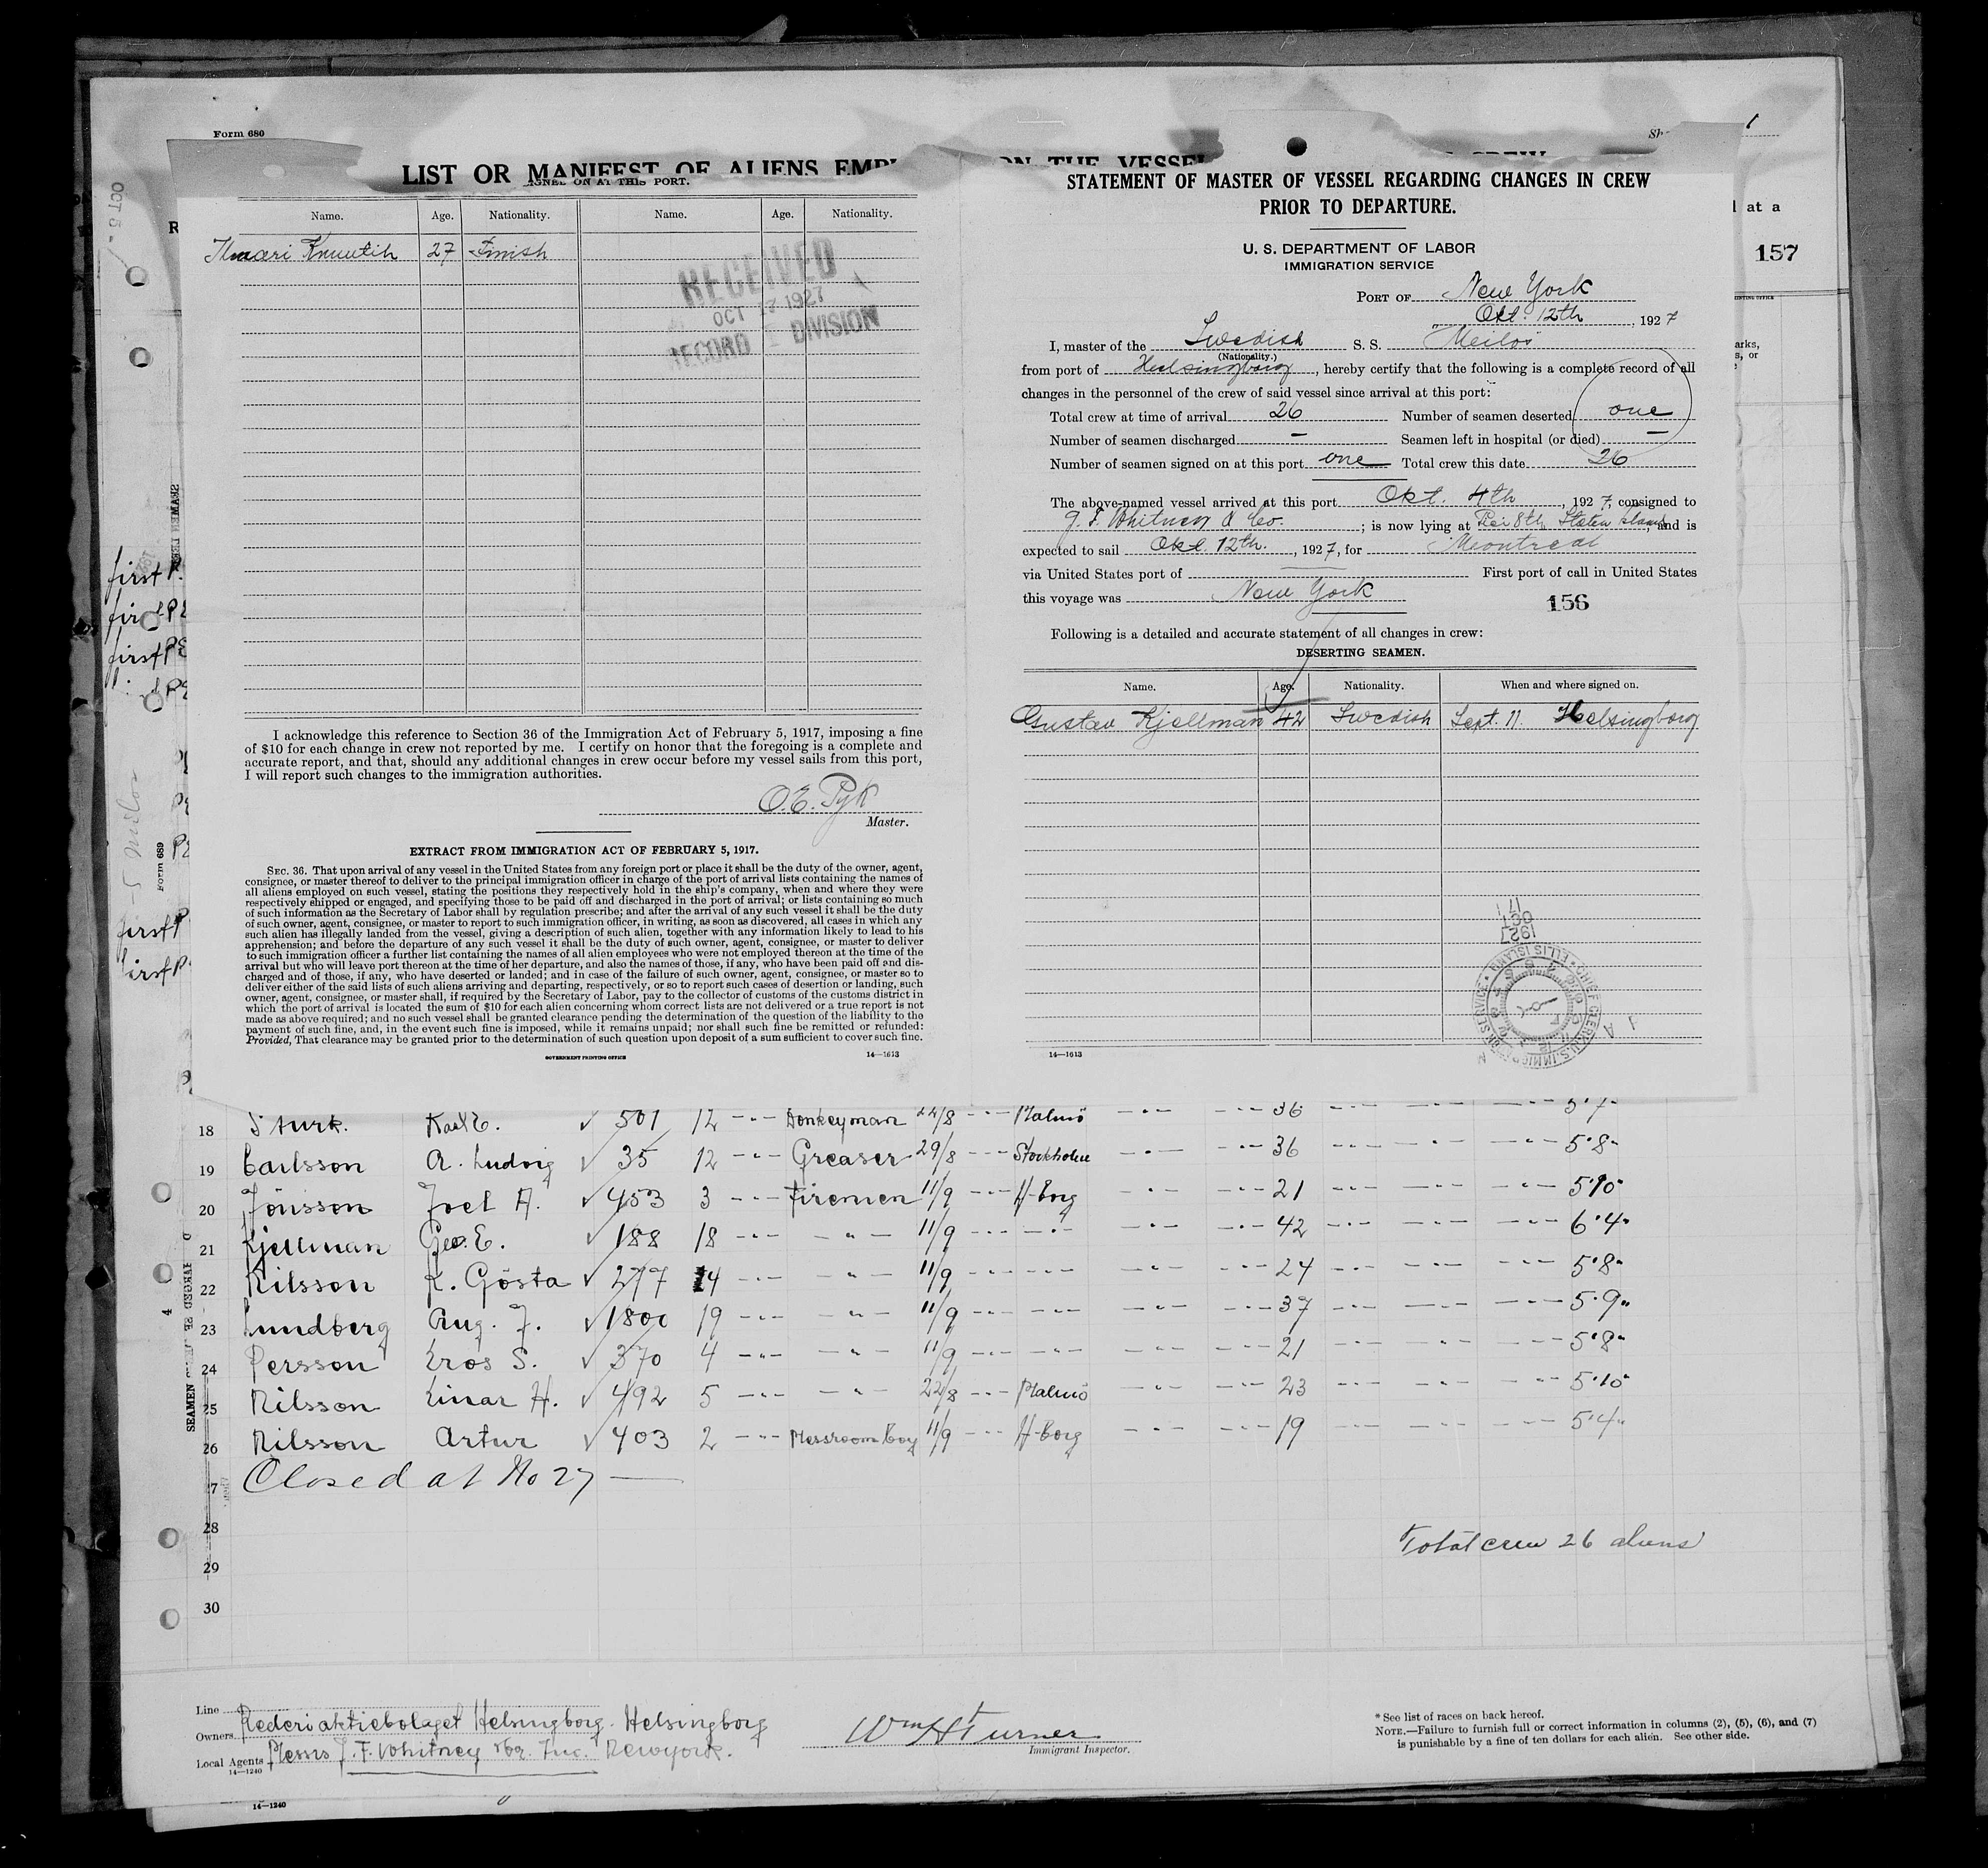 Form 680
LIST OR MANIFEST OF ALIENS
AGNED ON AT THIS PORT.
Name. Age. Nationality. Name. Age. Nationality.
27 Finish
RECEIVED
OCT 13 1927
RECORD DIVISION
I acknowledge this reference to Section 36 of the Immigration Act of February 5, 1917, imposing a fine
of $10 for each change in crew not reported by me. I certify on honor that the foregoing is a complete and
accurate report, and that, should any additional changes in crew occur before my vessel sails from this port,
I will report such changes to the immigration authorities.
O.E. Pyk
Master.
EXTRACT FROM IMMIGRATION ACT OF FEBRUARY 5, 1917.
SEC. 36. That upon arrival of any vessel in the United States from any foreign port or place it shall be the duty of the owner, agent,
consignee, or master thereof to deliver to the principal immigration officer in charge of the port of arrival lists containing the names of
all aliens employed on such vessel, stating the positions they respectively hold in the ship's company, when and where they were
respectively shipped or engaged, and specifying those to be paid off and discharged in the port of arrival; or lists containing so much
of such information as the Secretary of Labor shall by regulation prescribe; and after the arrival of any such vessel it shall be the duty
of such owner, agent, consignee, or master to report to such immigration officer, in writing, as soon as discovered, all cases in which any
such alien has illegally landed from the vessel, giving a description of such alien, together with any information likely to lead to his
apprehension; and before the departure of any such vessel it shall be the duty of such owner, agent, consignee, or master to deliver
to such immigration officer a further list containing the names of all alien employees who were not employed thereon at the time of the
arrival but who will leave port thereon at the time of her departure, and also the names of those, if any, who have been paid off and dis-
charged and of those, if any, who have deserted or landed; and in case of the failure of such owner, agent, consignee, or master so to
deliver either of the said lists of such aliens arriving and departing, respectively, or so to report such cases of desertion or landing, such
owner, agent, consignee, or master shall, if required by the Secretary of Labor, pay to the collector of customs of the customs district in
which the port of arrival is located the sum of $10 for each alien concerning whom correct lists are not delivered or a true report is not
made as above required; and no such vessel shall be granted clearance pending the determination of the question of the liability to the
payment of such fine, and, in the event such fine is imposed, while it remains unpaid; nor shall such fine be remitted or refunded:
Provided, That clearance may be granted prior to the determination of such question upon deposit of a sum sufficient to cover such fine.
GOVERNMENT PRINTING OFFICE 14—1613
STATEMENT OF MASTER OF VESSEL REGARDING CHANGES IN CREW
PRIOR TO DEPARTURE.
U. S. DEPARTMENT OF LABOR
IMMIGRATION SERVICE
PORT OF New York
Okt. 12th, 1927
I, master of the Swedish S. S. Meilos
(Nationality.)
from port of Helsingborg, hereby certify that the following is a complete record of all
changes in the personnel of the crew of said vessel since arrival at this port:
Total crew at time of arrival 26 Number of seamen deserted one
Number of seamen discharged - Seamen left in hospital (or died) -
Number of seamen signed on at this port one Total crew this date 26
The above-named vessel arrived at this port Okt. 4th, 1927, consigned to
J. F. Whitney & Co.; is now lying at Pier 8th Staten Island and is
expected to sail Okt. 12th., 1927, for Montreal
via United States port of First port of call in United States
this voyage was New York
156
Following is a detailed and accurate statement of all changes in crew:
DESERTING SEAMEN.
Name. Age. Nationality. When and where signed on.
Gustav Kjellman 42 Swedish Sept. 11. Helsingborg
OCT 17 1927
14—1613
at a
157
18 Sturk. Karl E. √ 501 12 --- Donkeyman 22/8 --- Malmö --- --- 36 --- --- --- 5'7"
19 Carlsson A. Ludvig √ 35 12 --- Greaser 29/8 --- Stockholm --- --- 36 --- --- --- 5'8"
20 Jönsson Joel A. √ 453 3 --- Firemen 11/9 --- H-borg --- --- 21 --- --- --- 5'10"
21 Kjellman Geo. E. √ 188 18 --- -"- 11/9 --- --- --- --- 42 --- --- --- 6'4"
22 Nilsson K. Gösta √ 277 14 --- -"- 11/9 --- --- --- --- 24 --- --- --- 5'8"
23 Lundberg Aug. F. √ 1800 19 --- -"- 11/9 --- --- --- --- 37 --- --- --- 5'9"
24 Persson Eros S. √ 370 4 --- -"- 11/9 --- --- --- --- 21 --- --- --- 5'8"
25 Nilsson Einar H. √ 492 5 --- -"- 22/8 --- Malmö --- --- 23 --- --- --- 5'10"
26 Nilsson Artur √ 403 2 --- Messroom boy 11/9 --- H-borg --- --- 19 --- --- --- 5'4"
Closed at No 27
28
Total crew 26 aliens
29
30
Line
Owners Rederiaktiebolaget Helsingborg. Helsingborg
Local Agents Messrs J. F. Whitney & Co. Inc. Newyork.
14—1240
Wm H Turner
Immigrant Inspector.
* See list of races on back hereof.
NOTE.—Failure to furnish full or correct information in columns (2), (5), (6), and (7)
is punishable by a fine of ten dollars for each alien. See other side.
14—1240